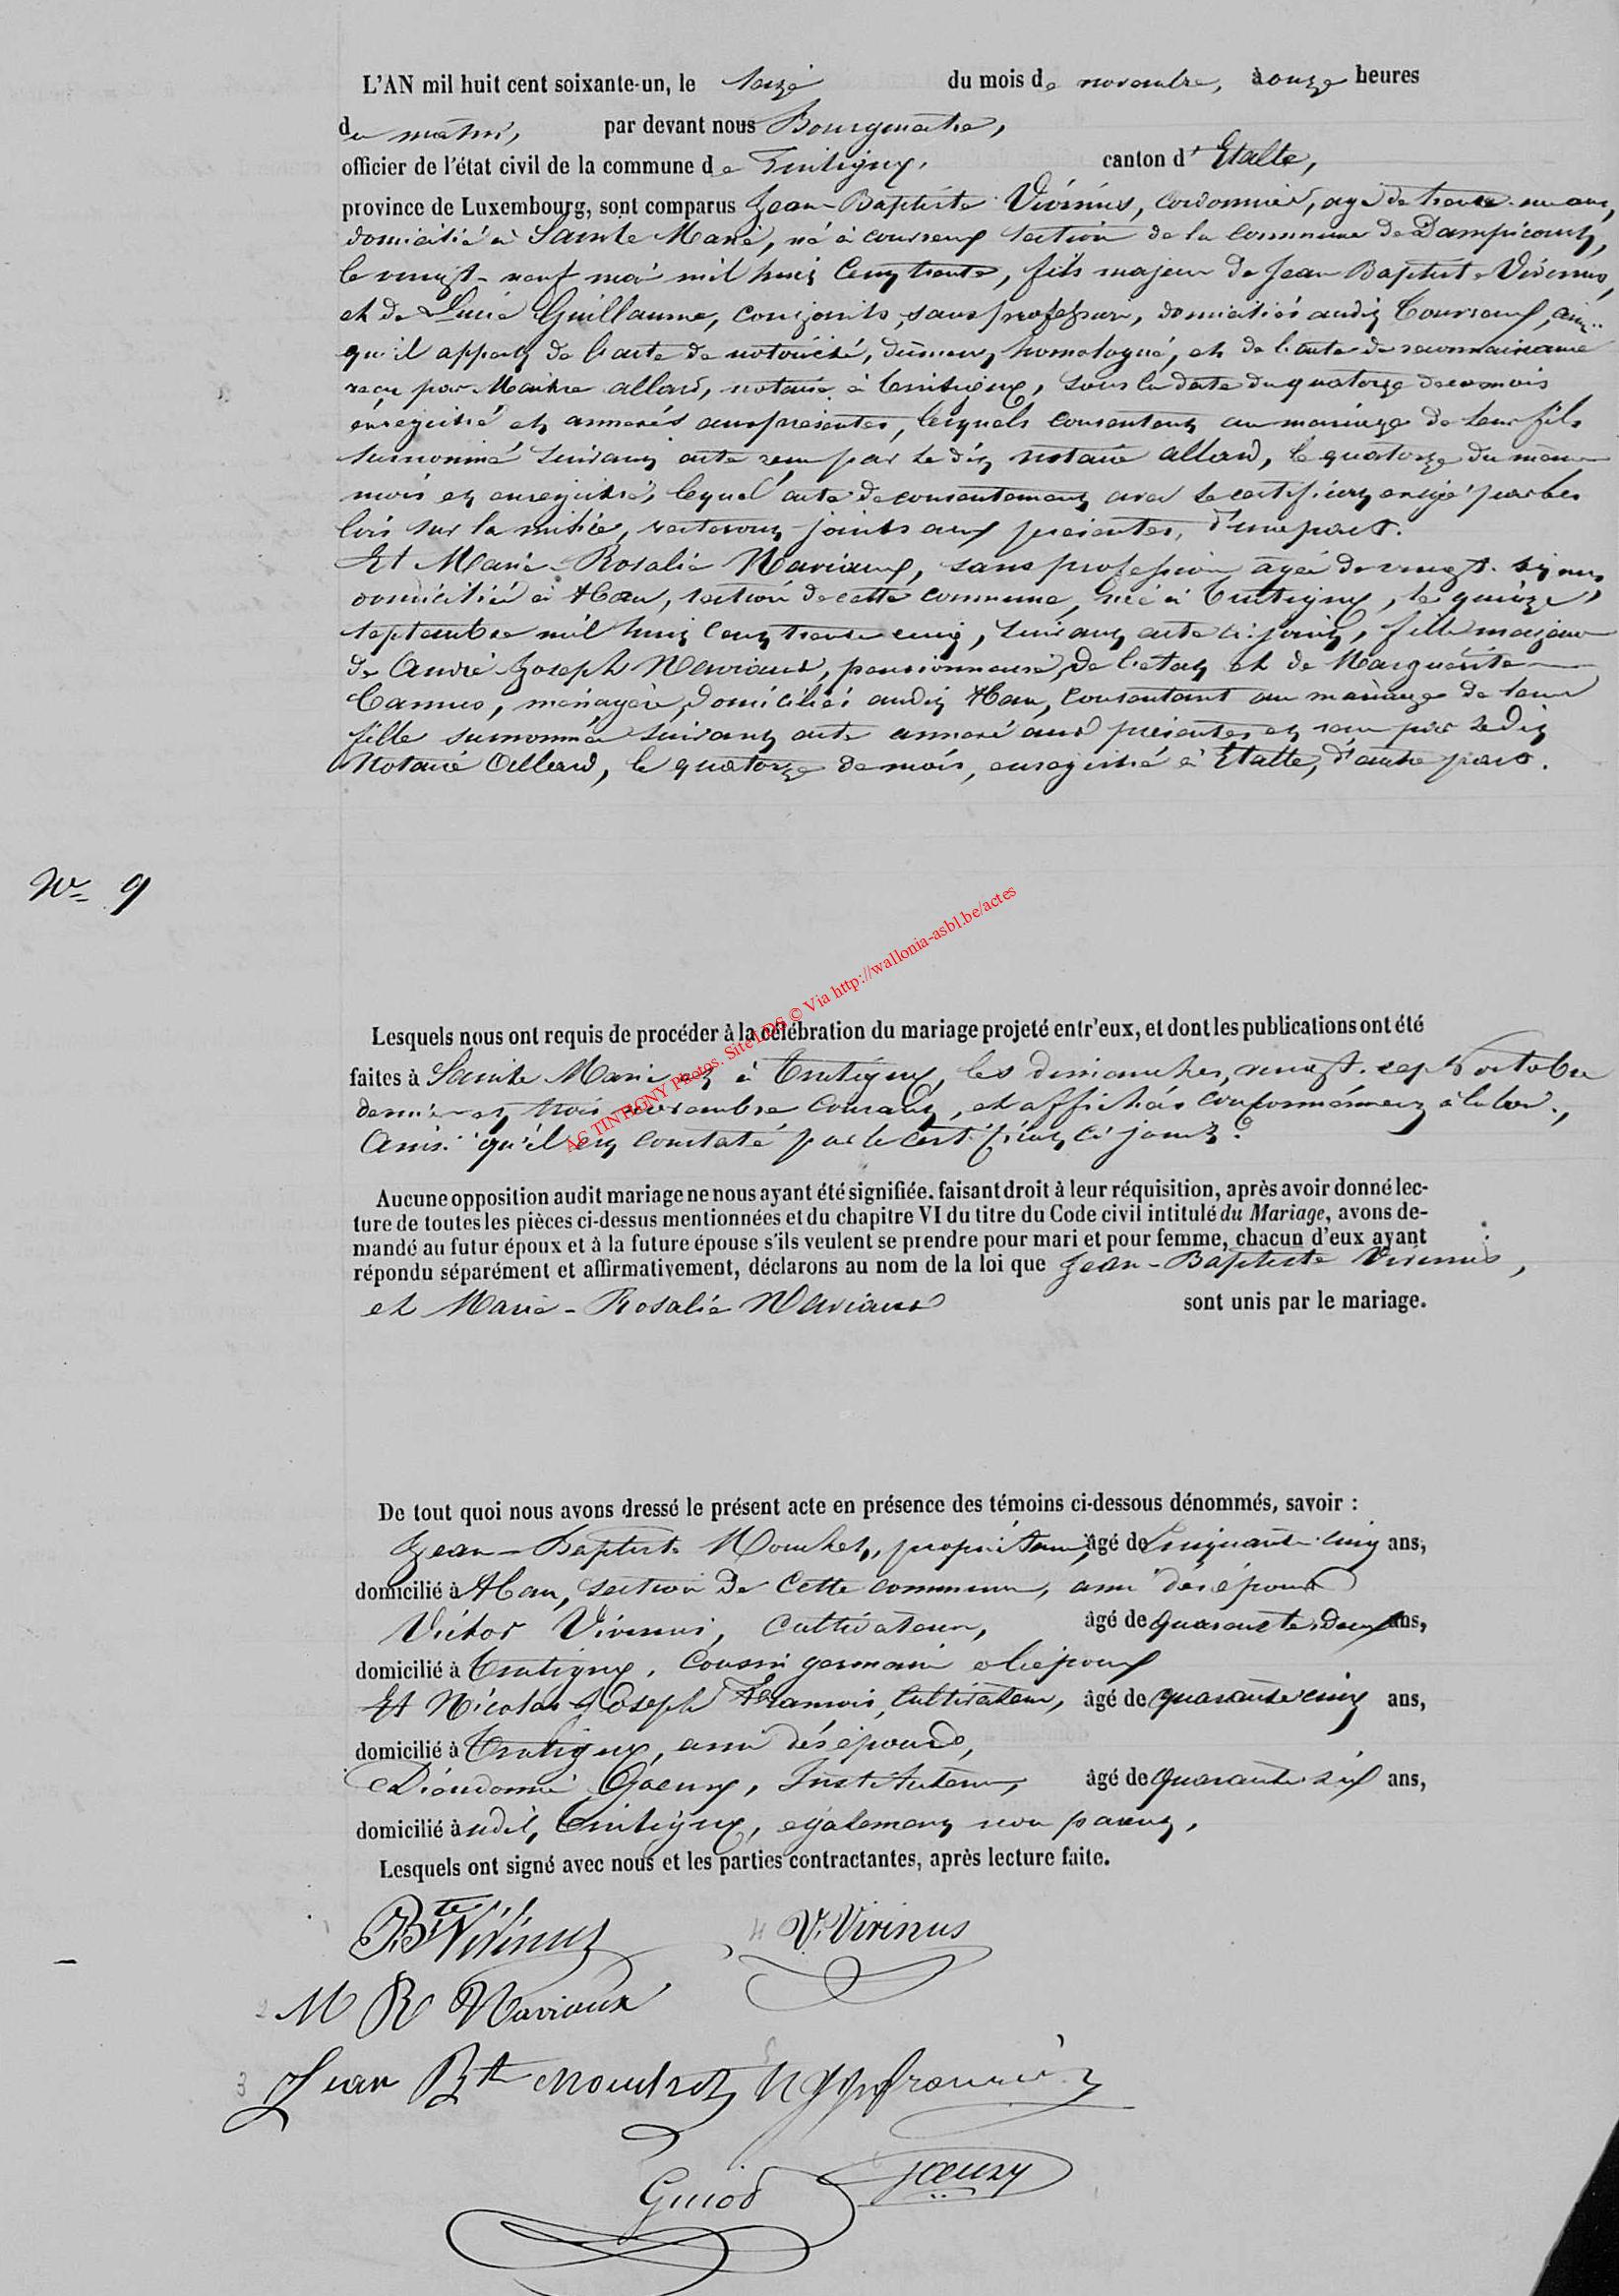 L'AN mil huit cent soixante-un, le seize du mois de novembre, à onze heures
du matin, par devant nous Bourgmestre,
officier de l'état civil de la commune de Tintigny, canton d' Etalle,
province de Luxembourg, sont comparus Jean-Baptiste Virinus, cordonnier, agé de trente-un ans,
domicilié à Sainte Marie, né à couvreux section de la commune de Dampicourt,
le vingt-neuf mai mil huit cent trente, fils majeur de Jean Baptiste Virinus,
et de Lucie Guillaume, conjoints, sans profession, domiciliés audit Couvreux, ainsi
qu'il appert de l'acte de notoriété, dûment homologué, et de l'acte de reconnaissance
reçu par Maitre allard, notaire à tintigny, sous la date du quatorze de ce mois
enrégistré et annexés aux présentes, lesquels consentent au mariage de leur fils
surnommé suivant acte reçu par le dit notaire allard, le quatorze du même
mois et enregistré, lequel acte de consentement avec le certificat exigé par les
lois sur la milice, resteront joints aux présentes, d'une part.
Et Marie-Rosalie Naviaux, sans profession agée de vingt-six ans,
domiciliée à Han, section de cette commune, née à tintigny, le quinze
septembre mil huit cent trente cinq, suivant acte ci-joint, fille majeure
de André Joseph Naviaux, pensionnaire de l'etat et de Marguerite
Camus, ménagère, domiciliés audit Han, consentant au mariage de leur
fille surnommée suivant acte annexé aux présentes et reçu par le dit
Notaire Allard, le quatorze de mois, enregistré à Etalle, d'autre part.
No 9
Lesquels nous ont requis de procéder à la célébration du mariage projeté entr'eux, et dont les publications ont été
faites à Sainte Marie et à tintigny, les dimanches, vingt-sept octobre
dernier et trois novembre courant, et affichés conformément à la loi,
ainsi qu'il est constaté par le certificat ci joint.
Aucune opposition audit mariage ne nous ayant été signifiée. faisant droit à leur réquisition, après avoir donné lec-
ture de toutes les pièces ci-dessus mentionnées et du chapitre VI du titre du Code civil intitulé du Mariage, avons de-
mandé au futur époux et à la future épouse s'ils veulent se prendre pour mari et pour femme, chacun d'eux ayant
répondu séparément et affirmativement, déclarons au nom de la loi que Jean-Baptiste Virinus,
et Marie-Rosalie Naviaux sont unis par le mariage.
De tout quoi nous avons dressé le présent acte en présence des témoins ci-dessous dénommés, savoir :
Jean-Baptiste Mouchet, propriétaire, âgé de Cinquante-cinq ans,
domicilié à Han, section de cette commune, ami des époux
Victor Virinus, cultivateur, âgé de quarante-deux ans,
domicilié à tintigny, cousin germain de l'époux
Et Nicolas Joseph françois, cultivateur, âgé de quarante cinq ans,
domicilié à tintigny, ami des époux,
Dieudonné Goeury, Instituteur, âgé de quarante six ans,
domicilié à udit, tintigny, également non parent,
Lesquels ont signé avec nous et les parties contractantes, après lecture faite.
J. Bte Virinus
4 V. Virinus
2 M R Naviaux
3 Jean Bte Mouchet
5 françois
Guiod
Goeury
AC TINTIGNY Photos. Site LDS © Via http://wallonia-asbl.be/actes